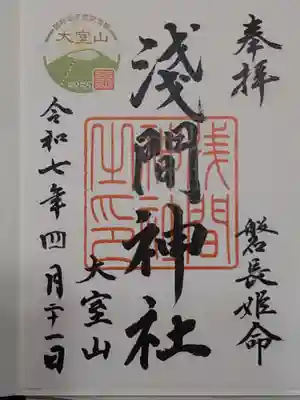 奉拝
磐長姫命
浅間神社
浅間
神社
之印
大室山
令和七年四月二十一日
大室山